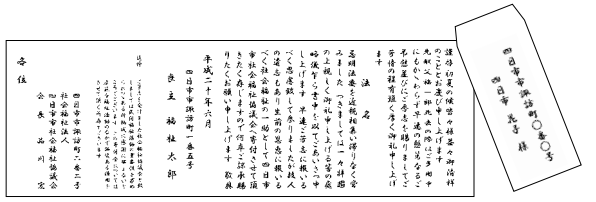 四日市市諏訪町〇番〇号
四日市 花子 様
謹啓 初夏の候皆々様益々御清祥
のこととお慶び申し上げます
先般 父福一郎死去の際はご多用中
にもかかわらず早速の懇篤なるご
弔慰並びにご厚志を賜りましてご
芳情の程有難く厚く御礼申し上げ
ます
法 名
忌明法要を近親相集い滞りなく営
みました つきましては一々拝趨
の上親しく御礼申し上げる筈の処
略儀乍ら書中を以てごあいさつ申
し上げます 早速ご芳志に報いる
べく思慮致して参りましたが故人
の遺志もあり生前の恩恵に報いる
べく社会福祉の一助として四日市
市社会福祉協議会へ寄付させて頂
きたく存じますので何卒ご諒承賜
りたくお願い申し上げます 敬具
平成二十年六月
四日市市諏訪町一番五号
喪主 福祉太郎
追伸
四日市市諏訪町二番二号
社会福祉法人
四日市市社会福祉協議会
会長 品川 宏
各位